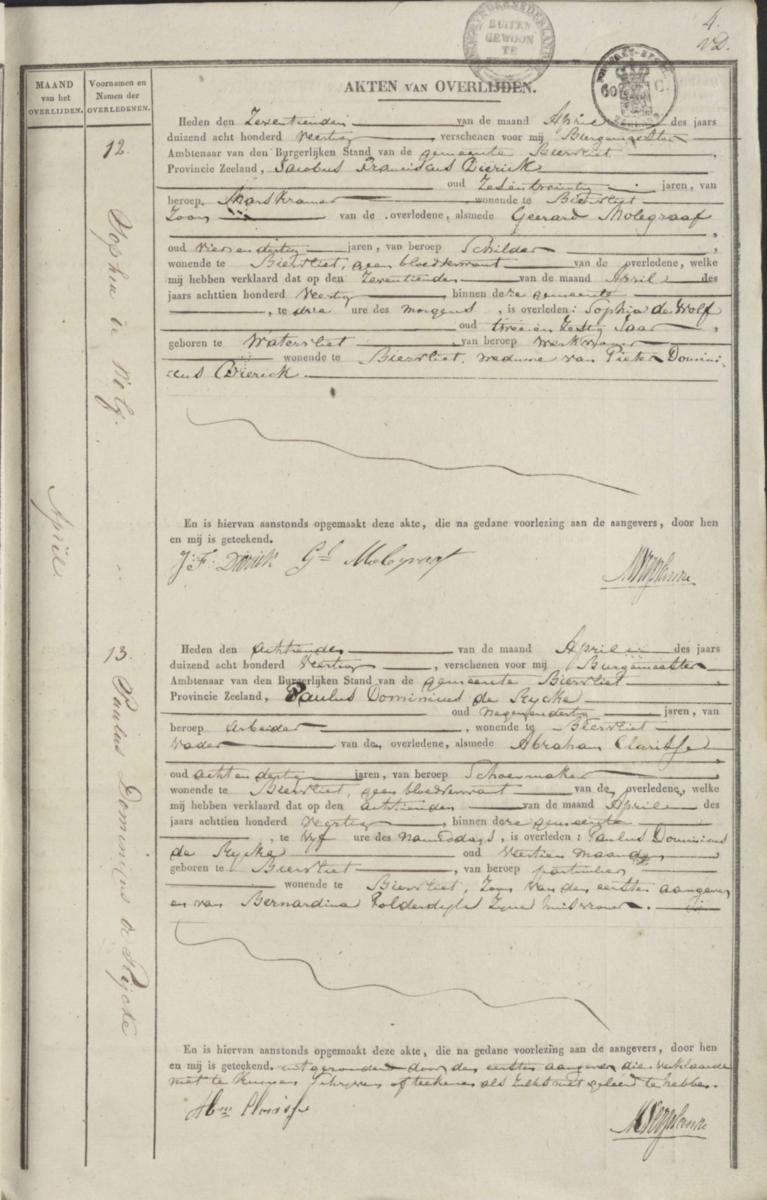 4.
VD.
BUITEN
GEWOON
TE
60 C.
MAAND
van het
OVERLIJDEN.
Voornamen en
Namen der
OVERLEDENEN.
AKTEN VAN OVERLIJDEN.
April
12.
Sophia de Wolf.
Heden den Zeventienden van de maand April des jaars
duizend acht honderd Veertig, verschenen voor mij Burgemeester
Ambtenaar van den Burgerlijken Stand van de gemeente Biervliet,
Provincie Zeeland, Jacobus Franciscus Dierick
oud Zesentwintig jaren, van
beroep Marskramer wonende te Biervliet
Zoon van de overledene, alsmede Geerard Molegraaf
oud vierendertig jaren, van beroep Schilder,
wonende te Biervliet, geen bloedverwant van de overledene, welke
mij hebben verklaard dat op den Zeventienden van de maand April des
jaars achttien honderd Veertig, binnen deze gemeente
, te drie ure des morgens, is overleden: Sophia de Wolf
oud twee en Zestig Jaar,
geboren te Watervliet van beroep werkvrouw
wonende te Biervliet, weduwe van Pieter Domini-
cus Dierick.
En is hiervan aanstonds opgemaakt deze akte, die na gedane voorlezing aan de aangevers, door hen
en mij is geteekend.
J: F: Dierick Gd Molegraaf
13.
Paulus Dominicus de Rycke
Heden den achttienden van de maand April des jaars
duizend acht honderd Veertig, verschenen voor mij Burgemeester
Ambtenaar van den Burgerlijken Stand van de gemeente Biervliet
Provincie Zeeland, Paulus Dominicus de Rycke
oud negenendertig jaren, van
beroep Arbeider, wonende te Biervliet
Vader van den overledene, alsmede Abraham Claritse
oud acht en dertig jaren, van beroep Schoenmaker
wonende te Biervliet, geen bloedverwant van den overledene, welke
mij hebben verklaard dat op den achttienden van de maand April des
jaars achttien honderd Veertig, binnen deze gemeente
, te vyf ure des namiddags, is overleden: Paulus Dominicus
de Rycke oud veertien maanden
geboren te Biervliet, van beroep particulier
wonende te Biervliet, Zoon van den eersten aangever
en van Bernardina Polderdyk Zyne huisvrouw.
En is hiervan aanstonds opgemaakt deze akte, die na gedane voorlezing aan de aangevers, door hen
en mij is geteekend. uitgezonderd door den eersten aangever die verklaarde
niet te kunnen Schryven of teekenen als zulks niet geleerd te hebben.